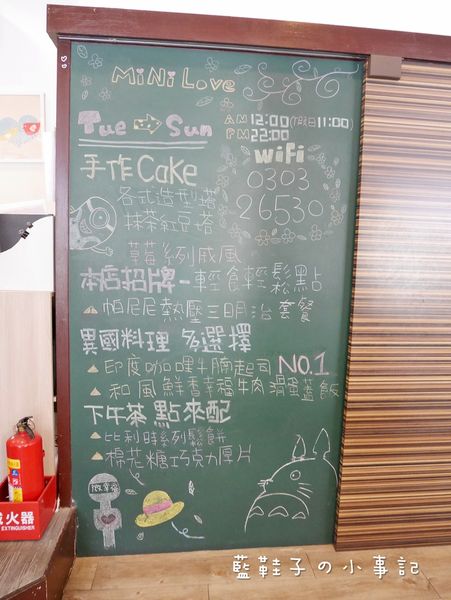 MiNi Love
Tue ⇨ Sun
AM 12:00(假日11:00)
PM 22:00
WiFi
0303
26530
手作Cake
各式造型
抹茶紅豆塔
草莓系列戚風
本店招牌-輕食輕鬆點
帕尼尼熱壓三明治套餐
異國料理 多選擇
印度咖哩牛腩起司 NO.1
和風鮮香幸福牛肉滑蛋蓋飯
下午茶 點來配
比利時系列鬆餅
棉花糖巧克力厚片
滅火器
EXTINGUISHER
藍鞋子の小事記